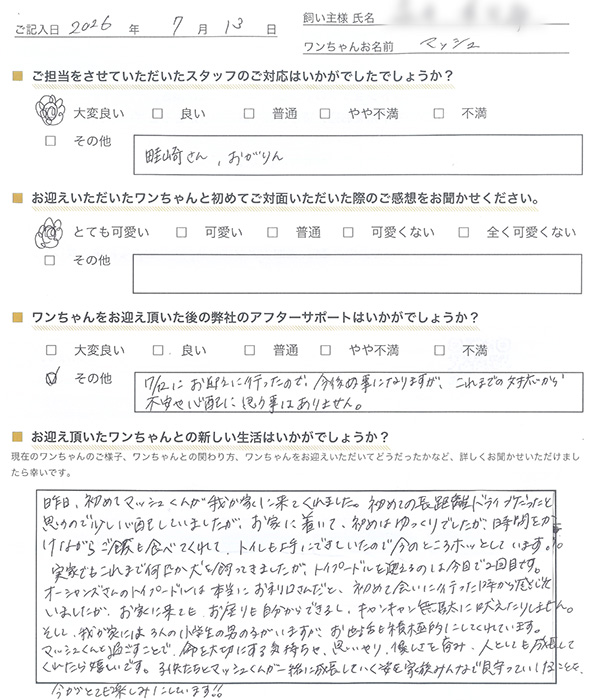 ご記入日 2026 年 7 月 13 日
飼い主様 氏名
ワンちゃんお名前 マッシュ
■ ご担当をさせていただいたスタッフのご対応はいかがでしたでしょうか？
大変良い □ 良い □ 普通 □ やや不満 □ 不満
□ その他
畦崎さん、おがりん
■ お迎えいただいたワンちゃんと初めてご対面いただいた際のご感想をお聞かせください。
とても可愛い □ 可愛い □ 普通 □ 可愛くない □ 全く可愛くない
□ その他
■ ワンちゃんをお迎え頂いた後の弊社のアフターサポートはいかがでしょうか？
□ 大変良い □ 良い □ 普通 □ やや不満 □ 不満
☑ その他
7/12に お迎えに行ったので、今後の事になりますが、これまでの対応から
不安や心配に思う事はありません。
■ お迎え頂いたワンちゃんとの新しい生活はいかがでしょうか？
現在のワンちゃんのご様子、ワンちゃんとの関わり方、ワンちゃんをお迎えいただいてどうだったかなど、詳しくお聞かせいただけましたら幸いです。
昨日、初めてマッシュくんが我が家に来てくれました。初めての長距離ドライブだったと
思うので少し心配していましたが、お家に着いて、初めはゆっくりでしたが、時間をか
けながらご飯も食べてくれて、トイレも上手にできていたので今のところホッとしています。
実家でもこれまで何匹か犬を飼ってきましたが、トイプードルを迎えるのは今回で2回目です。
オーシャンズさんのトイプードルは本当にお利口さんだと、初めて会いに行った時から感じて
いましたが、お家に来ても、お座りも自分からできるし、キャンキャン無駄に吠えたりしません。
そして、我が家には3人の小学生の男の子がいますが、お世話も積極的にしてくれています。
マッシュくんと過ごすことで、命を大切にする気持ちや、思いやり、優しさを育み、人としても成長して
くれたら嬉しいです。子供たちとマッシュくんが一緒に成長していく姿を家族みんなで見守っていけることを、
今からとても楽しみにしています!!